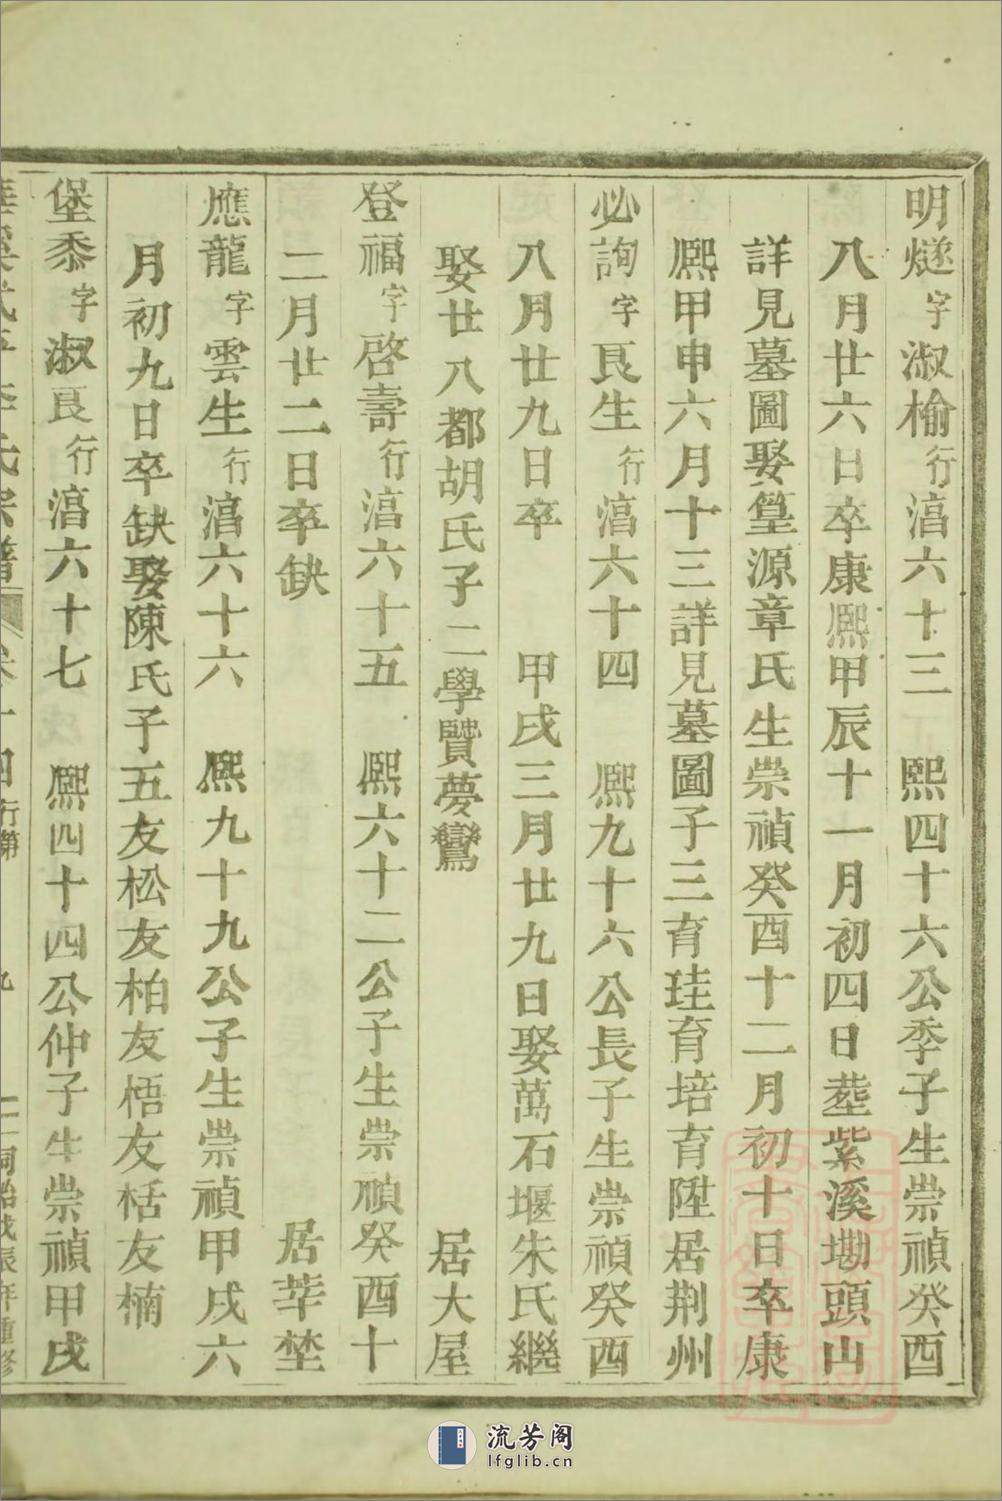 明燧字淑榆行滈六十三 熙四十六公季子生崇禎癸酉
八月廿六日卒康熙甲辰十一月初四日塟紫溪塘頭山
詳見墓圖娶篁源章氏生崇禎癸酉十二月初十日卒康
熙甲申六月十三詳見墓圖子三育珪育培育陞居荆州
必詢字艮生行滈六十四 熙九十六公長子生崇禎癸酉
八月廿九日卒 甲戌三月廿九日娶萬石堰朱氏繼
娶廿八都胡氏子二學贒夢鸞 居大屋
登福字啓壽行滈六十五 熙六十二公子生崇禎癸酉十
二月廿二日卒缺 居莘埜
應龍字雲生行滈六十六 熙九十九公子生崇禎甲戌六
月初九日卒缺娶陳氏子五友松友柏友梧友栝友楠
堡黍字淑艮行滈六十七 熙四十四公仲子生崇禎甲戌
氏宗譜 行第 九 同治戊辰年重修
流芳阁
lfglib.cn